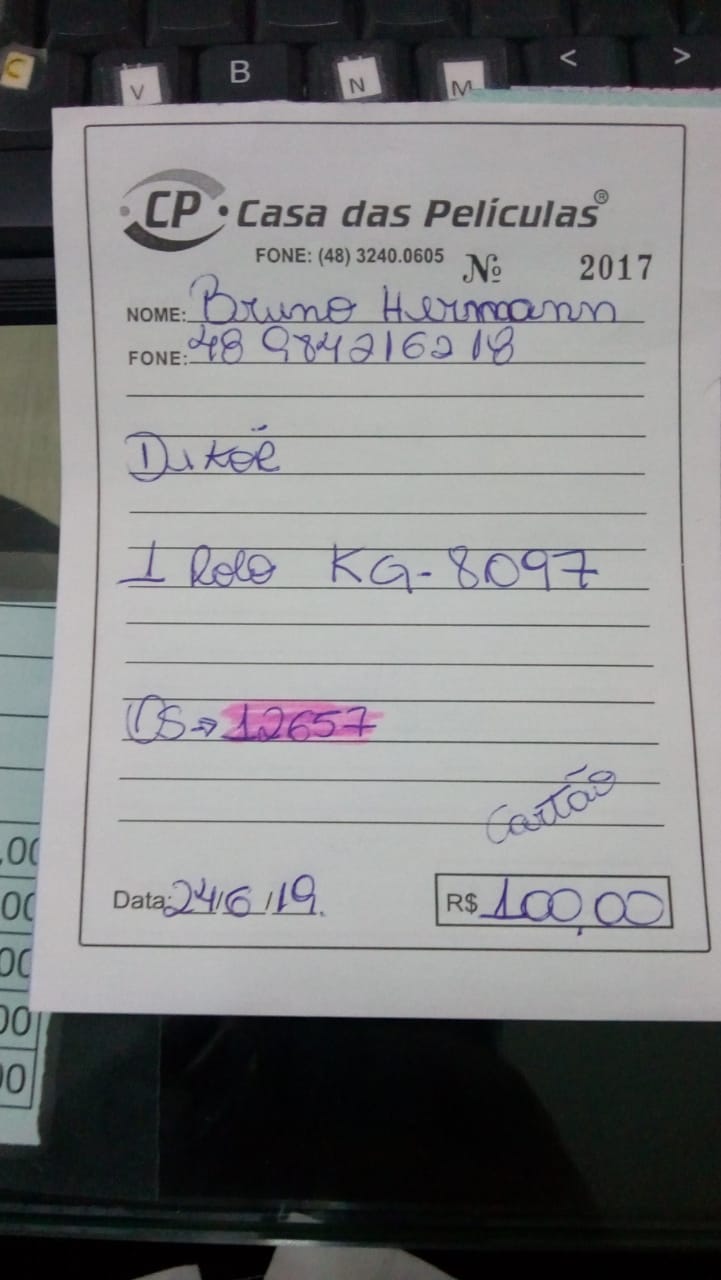 C V B N M < >
CP Casa das Películas®
FONE: (48) 3240.0605 Nº 2017
NOME: Bruno Hermann
FONE: 48 984216218
1 Rolo KG-8097
OS → 12657
Cartão
Data: 24/6/19.
R$ 100,00
,00
00
00
00
00